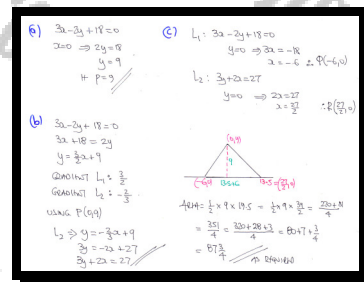 (a) 3x-2y+18=0
x=0 ⇒ 2y=18
y=9
It P=9
(b) 3x-2y+18=0
3x+18=2y
y=3/2x+9
GRADIENT L1: 3/2
GRADIENT L2: -2/3
USING P(0,9)
L2 ⇒ y=-2/3x+9
3y=-2x+27
3y+2x=27
(c) L1: 3x-2y+18=0
y=0 ⇒ 3x=-18
x=-6 ∴ Q(-6,0)
L2: 3y+2x=27
y=0 ⇒ 2x=27
x=27/2 ∴ R(27/2,0)
(0,9)
9
(-6,0) 13.5+6 13.5=(27/2,0)
AREA=1/2×9×19.5=1/2×9×39/2=
=351/4=320+28+3/4=80+7+3/4
=87 3/4
AS REQUIRED